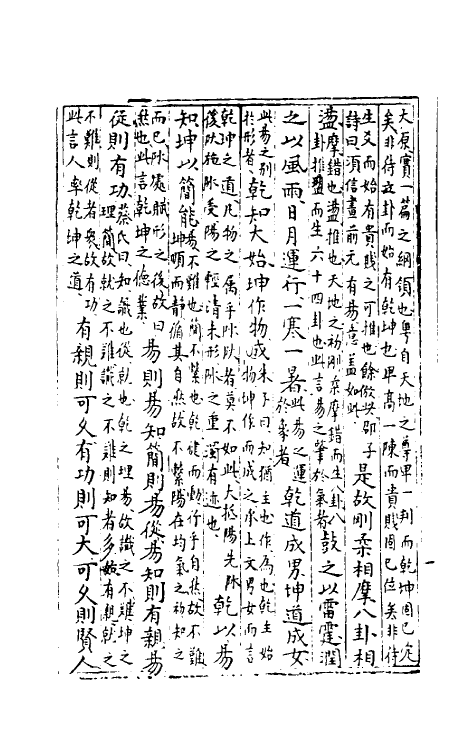 大原實一篇之綱領也粤自天地之尊卑一判而乾坤固已定
矣非待立卦而始有乾坤也卑高一陳而貴賤固已位矣非待
生爻而始有貴賤之可推也餘倣此邵子
詩曰須信畫前元有易意蓋如此
是故剛柔相摩八卦相
盪
摩錯也盪推也天地之初剛柔摩錯而生八卦八
卦推盪而生六十四卦也此言易之肇於氣者
鼓之以雷霆潤
之以風雨日月運行一寒一暑
此易之運
於象者
乾道成男坤道成女
此易之別
於形者
乾知大始坤作物成
朱子曰知猶主也作為也乾主始
物坤作而成之承上文男女而言
乾坤之道凡物之屬乎陰陽者莫不如此大抵陽先陰
後陽施陰受陽之輕清未形陰之重濁有迹也
乾以易
知坤以簡能
易不難也簡不繁也乾健而動行乎自然故不難
坤順而靜循其自然故不繁陽在均氣之初知之
而已陰處賦形之後故曰
能也此言乾坤之德業
易則易知簡則易從易知則有親易
從則有功
蔡氏曰知識也從就也乾之理易故識之不難坤之
理簡故就之不難識之不難則知者多故有親就之
不難則從者衆故有功
此言人率乾坤之道
有親則可久有功則可大可久則賢人